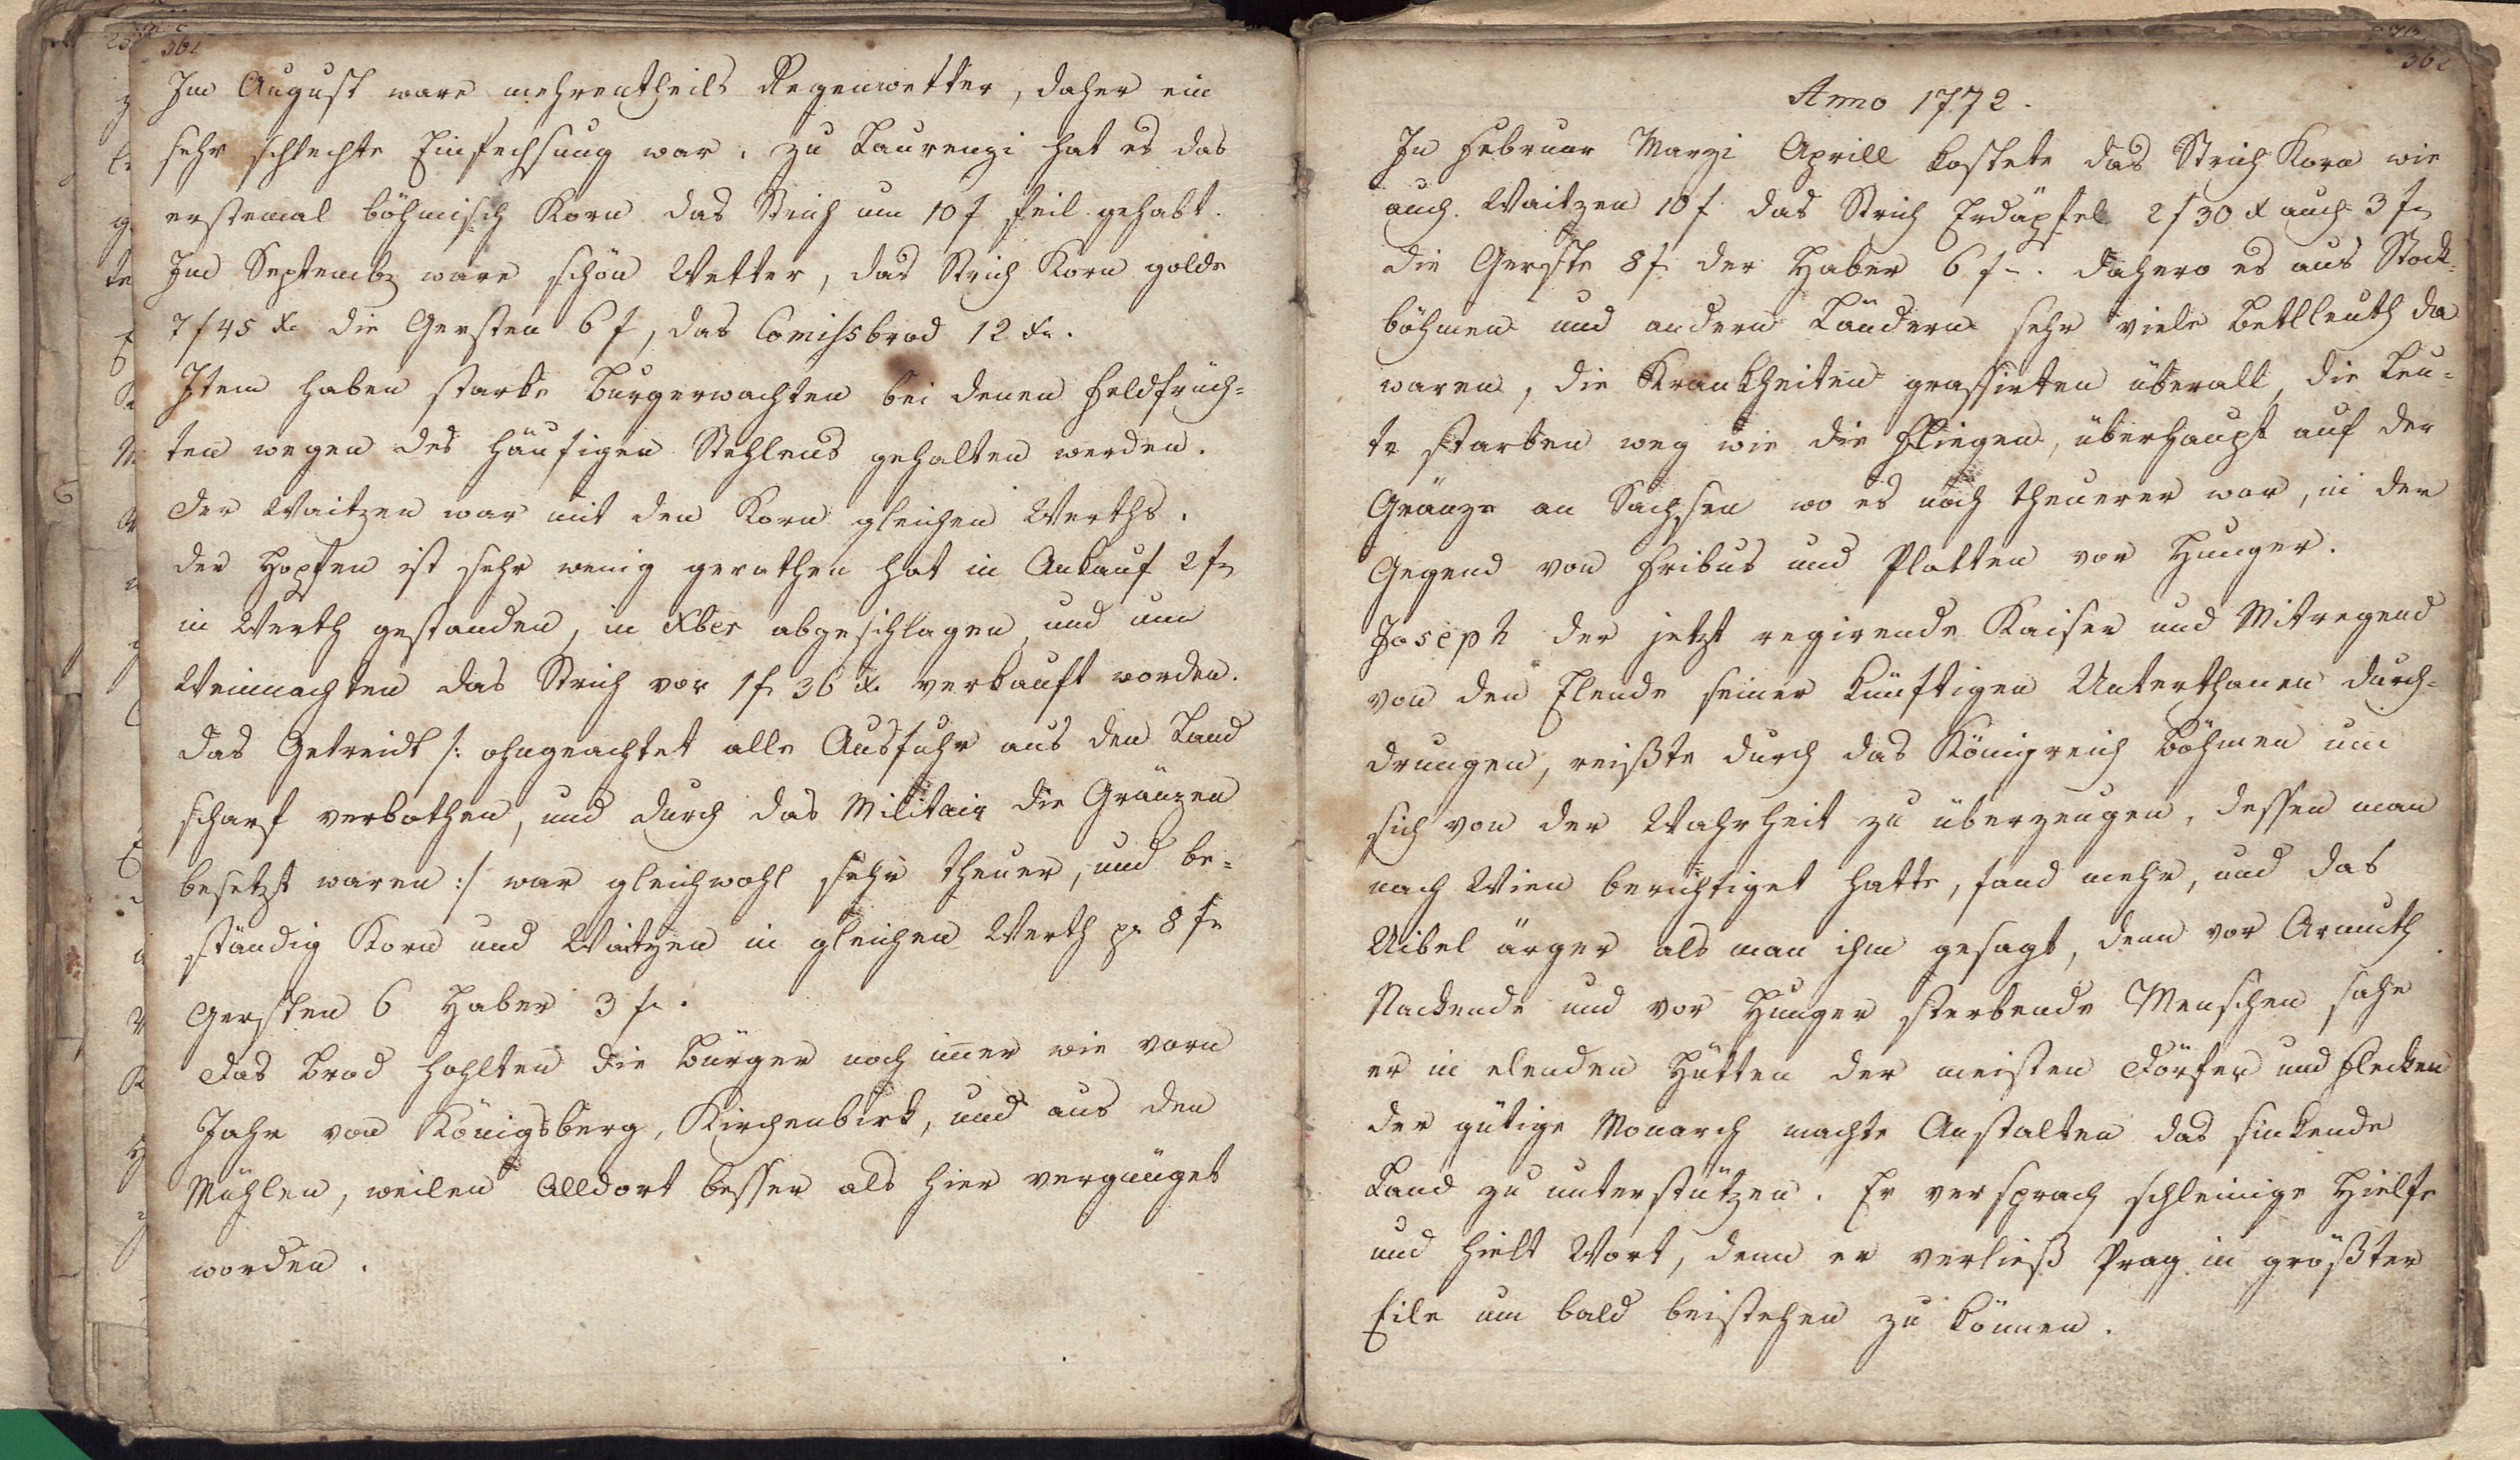 361
Im August ware mehrentheils Regenwetter, daher ein
sehr schlechte Einfechsung war. zu Laurenzi hat es das
erstemal böhmisch Korn das Strich um 10 f feil gehabt.
Im Septemb. ware schön Wetter, das Strich Korn golde
7 f 45 x. die Gersten 6 f, das Comissbrod 12 x.
Item haben starke Burgerwachten bei denen Feldfrüch=
ten wegen des häufigen Stehlens gehalten werden.
Der Waitzen war mit den Korn gleichen Werths.
der Hopfen ist sehr wenig gerathen hat in Ankauf 2 f
in Werth gestanden, in Xber abgeschlagen, und um
Weinnachten das Strich vor 1 f. 36 x. verkauft worden.
Das Getreidt /: ohngeachtet alle Ausfuhr aus den Land
scharf verbothen, und durch das Militair die Gränzen
besetzt waren :/ war gleichwohl sehr theuer, und be=
ständig Korn und Waitzen in gleichen Werth p. 8 f
Gersten 6 Haber 3 f.
Das Brod hohlten die Bürger noch im̄er wie vorn
Jahr von Königsberg, Kirchenbirk, und aus den
Mühlen, weilen Alldort besser als hier vergnüget
worden.
362
Anno 1772.
In Februar Marzi Aprill kostete das Strich Korn wie
auch Waitzen 10 f. das Strich Erdäpfel 2 f 30 x auch 3 f
die Gerste 8 f. der Haber 6 f. Dahero es aus Stock=
böhmen und andern Ländern sehr viele Bettleuth da
waren, die Krankheiten grassirten überall, die Leu=
te starben weg wie die Fliegen, überhaupt auf der
Gränze an Sachsen wo es noch theuerer war, in der
Gegend von Fribus und Platten vor Hunger.
Joseph der jetzt regirende Kaiser und Mitregend
von den Elende seiner künftigen Unterthanen durch=
drungen, reißte durch das Königreich Böhmen um
sich von der Wahrheit zu überzeugen, dessen man
nach Wien berichtiget hatte, fand mehr, und das
Uibel ärger als man ihm gesagt, denn vor Armuth
Nackende und vor Hunger sterbende Menschen sahe
er in elenden Hütten der meisten Dörfer und Flecken
der gütige Monarch machte Anstalten das sinkende
Land zu unterstützen. Er versprach schleinige Hielfe
und hielt Wort, denn er verließ Prag in größter
Eile um bald beistehen zu können.